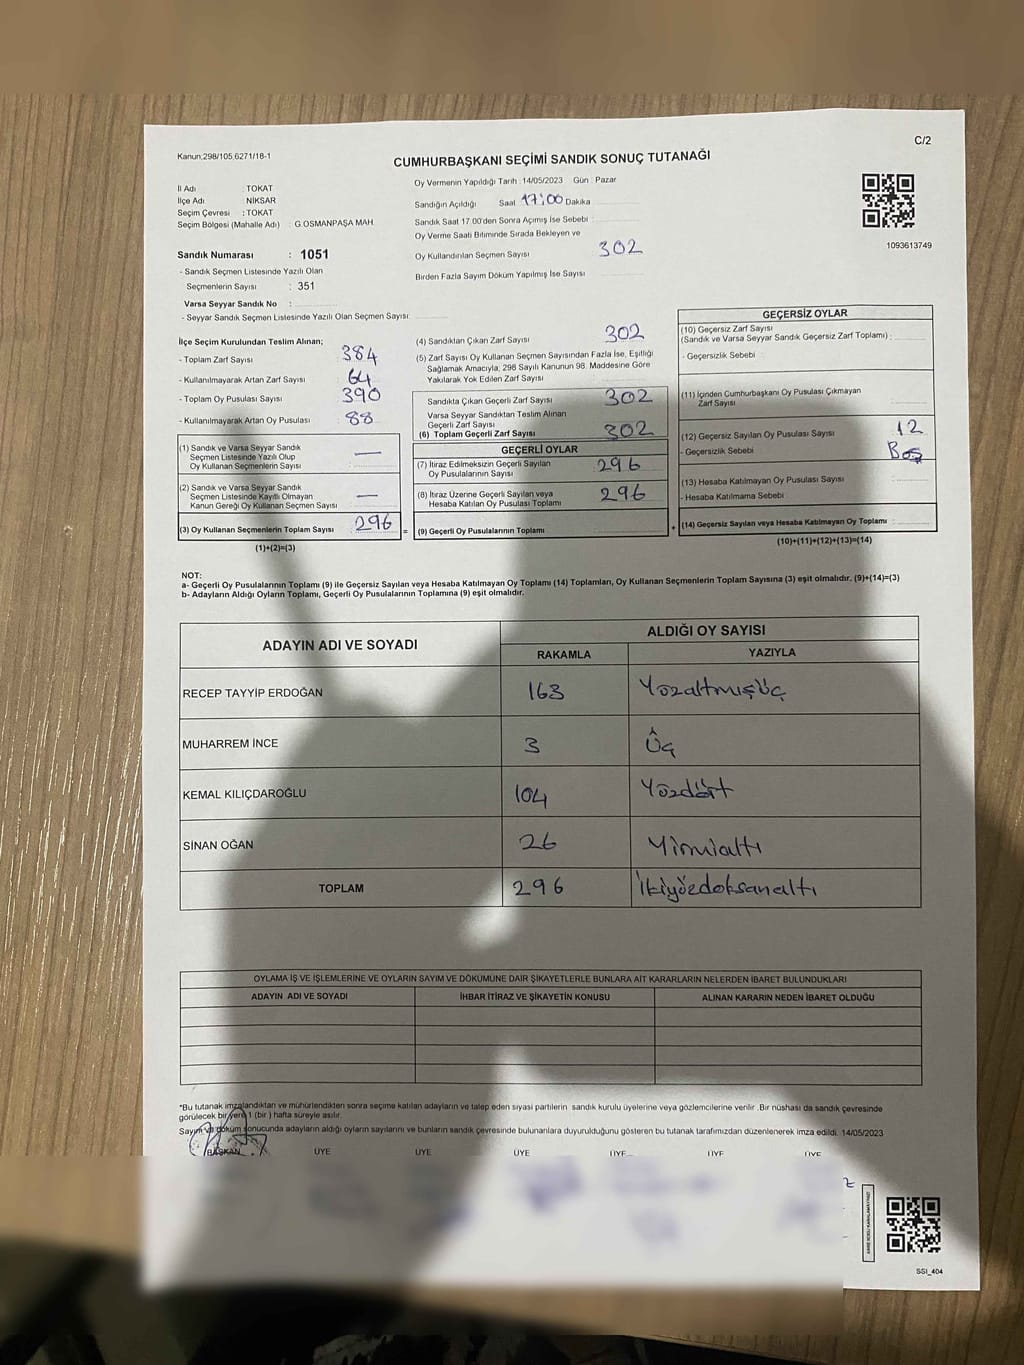 C/2
Kanun;298/105,6271/18-1
CUMHURBAŞKANI SEÇİMİ SANDIK SONUÇ TUTANAĞI
İl Adı : TOKAT
İlçe Adı : NİKSAR
Seçim Çevresi : TOKAT
Seçim Bölgesi (Mahalle Adı) : G.OSMANPAŞA MAH.
Oy Vermenin Yapıldığı Tarih :14/05/2023 Gün : Pazar
Sandığın Açıldığı Saat 17:00 Dakika
Sandık Saat 17.00'den Sonra Açımış İse Sebebi :
Oy Verme Saati Bitiminde Sırada Bekleyen ve
Oy Kullandırılan Seçmen Sayısı 302
Birden Fazla Sayım Döküm Yapılmış İse Sayısı
1093613749
Sandık Numarası : 1051
- Sandık Seçmen Listesinde Yazılı Olan
Seçmenlerin Sayısı : 351
Varsa Seyyar Sandık No :
- Seyyar Sandık Seçmen Listesinde Yazılı Olan Seçmen Sayısı:
İlçe Seçim Kurulundan Teslim Alınan;
- Toplam Zarf Sayısı 384
- Kullanılmayarak Artan Zarf Sayısı 64
- Toplam Oy Pusulası Sayısı 390
- Kullanılmayarak Artan Oy Pusulası 88
(1) Sandık ve Varsa Seyyar Sandık
Seçmen Listesinde Yazılı Olup
Oy Kullanan Seçmenlerin Sayısı : —
(2) Sandık ve Varsa Seyyar Sandık
Seçmen Listesinde Kayıtlı Olmayan
Kanun Gereği Oy Kullanan Seçmen Sayısı : —
(3) Oy Kullanan Seçmenlerin Toplam Sayısı 296
(1)+(2)=(3)
(4) Sandıktan Çıkan Zarf Sayısı 302
(5) Zarf Sayısı Oy Kullanan Seçmen Sayısından Fazla İse, Eşitliği
Sağlamak Amacıyla; 298 Sayılı Kanunun 98. Maddesine Göre
Yakılarak Yok Edilen Zarf Sayısı
Sandıkta Çıkan Geçerli Zarf Sayısı 302
Varsa Seyyar Sandıktan Teslim Alınan
Geçerli Zarf Sayısı
(6) Toplam Geçerli Zarf Sayısı 302
GEÇERLİ OYLAR
(7) İtiraz Edilmeksizin Geçerli Sayılan
Oy Pusulalarının Sayısı 296
(8) İtiraz Üzerine Geçerli Sayılan veya
Hesaba Katılan Oy Pusulası Toplamı 296
= (9) Geçerli Oy Pusulalarının Toplamı
GEÇERSİZ OYLAR
(10) Geçersiz Zarf Sayısı
(Sandık ve Varsa Seyyar Sandık Geçersiz Zarf Toplamı) :
- Geçersizlik Sebebi
(11) İçinden Cumhurbaşkanı Oy Pusulası Çıkmayan
Zarf Sayısı
(12) Geçersiz Sayılan Oy Pusulası Sayısı 12
- Geçersizlik Sebebi Boş
(13) Hesaba Katılmayan Oy Pusulası Sayısı
- Hesaba Katılmama Sebebi
+ (14) Geçersiz Sayılan veya Hesaba Katılmayan Oy Toplamı
(10)+(11)+(12)+(13)=(14)
NOT:
a- Geçerli Oy Pusulalarının Toplamı (9) ile Geçersiz Sayılan veya Hesaba Katılmayan Oy Toplamı (14) Toplamları, Oy Kullanan Seçmenlerin Toplam Sayısına (3) eşit olmalıdır. (9)+(14)=(3)
b- Adayların Aldığı Oyların Toplamı, Geçerli Oy Pusulalarının Toplamına (9) eşit olmalıdır.
ADAYIN ADI VE SOYADI ALDIĞI OY SAYISI
RAKAMLA YAZIYLA
RECEP TAYYİP ERDOĞAN 163 Yüzaltmışüç
MUHARREM İNCE 3 Üç
KEMAL KILIÇDAROĞLU 104 Yüzdört
SİNAN OĞAN 26 Yirmialtı
TOPLAM 296 İkiyüzdoksanaltı
OYLAMA İŞ VE İŞLEMLERİNE VE OYLARIN SAYIM VE DÖKÜMÜNE DAİR ŞİKAYETLERLE BUNLARA AİT KARARLARIN NELERDEN İBARET BULUNDUKLARI
ADAYIN ADI VE SOYADI İHBAR İTİRAZ VE ŞİKAYETİN KONUSU ALINAN KARARIN NEDEN İBARET OLDUĞU
*Bu tutanak imzalandıktan ve mühürlendikten sonra seçime katılan adayların ve talep eden siyasi partilerin sandık kurulu üyelerine veya gözlemcilerine verilir .Bir nüshası da sandık çevresinde
görülecek bir yere 1 (bir ) hafta süreyle asılır.
Sayım ve döküm sonucunda adayların aldığı oyların sayılarını ve bunların sandık çevresinde bulunanlara duyurulduğunu gösteren bu tutanak tarafımızdan düzenlenerek imza edildi. 14/05/2023
BAŞKAN ÜYE ÜYE ÜYE ÜYE ÜYE ÜYE
SSI_404